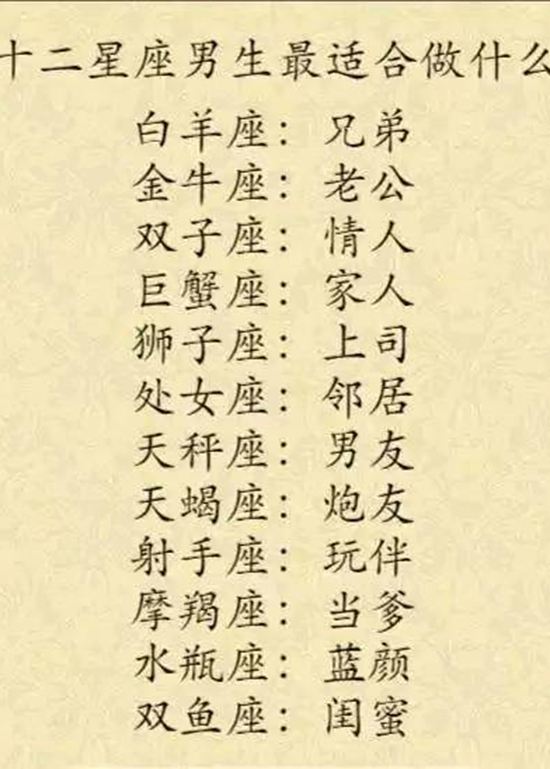 十二星座男生最适合做什么
白羊座：兄弟
金牛座：老公
双子座：情人
巨蟹座：家人
狮子座：上司
处女座：邻居
天秤座：男友
天蝎座：炮友
射手座：玩伴
摩羯座：当爹
水瓶座：蓝颜
双鱼座：闺蜜